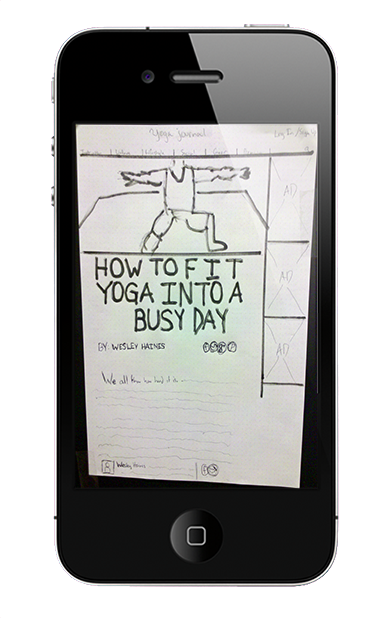 Yoga Journal
Log In / Sign Up
AD
HOW TO FIT
YOGA INTO A
BUSY DAY
AD
BY: WESLEY HAINES
AD
We all know how hard it is
Wesley Haines